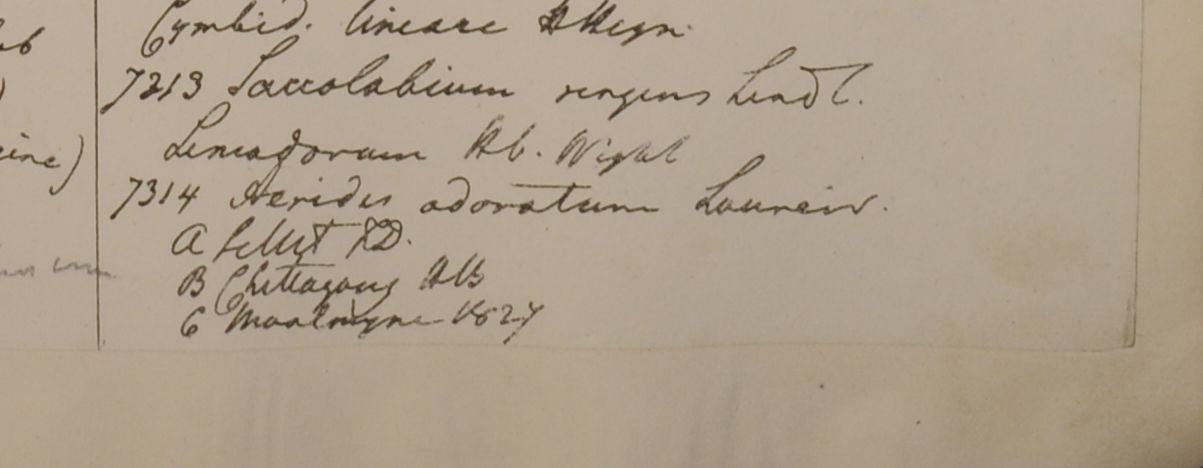 Cymbid. lineare H Heyn.
7313 Saccolabium ringens Lindl.
Limodorum Hb. Wight
7314 Aerides odoratum Loureir.
A Sillet FD.
B Chittagong HB
C Moalmyne 1827
eb
)
cine)